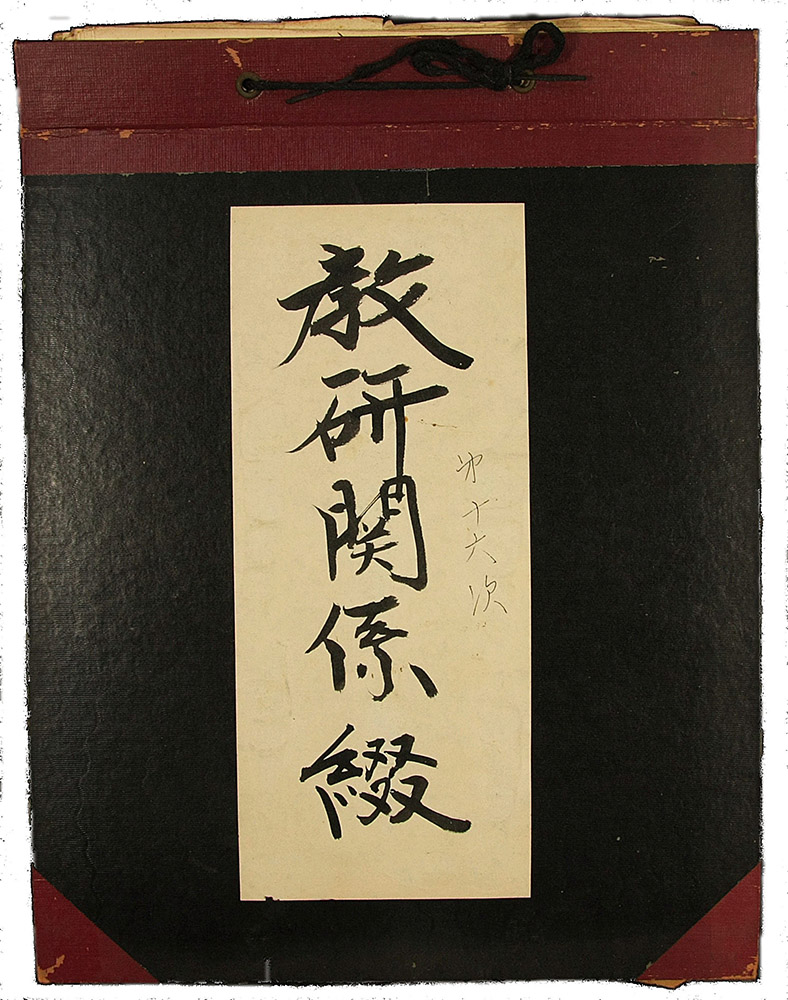 教研関係綴
第十六次